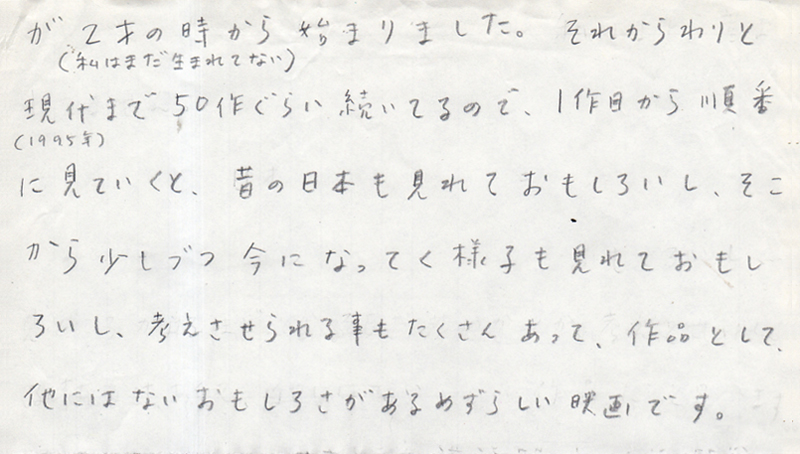 が 2才の時から始まりました。それからわりと
(私はまだ生まれてない)
現代まで50作ぐらい続いてるので、1作目から順番
(1995年)
に見ていくと、昔の日本も見れておもしろいし、そこ
から少しづつ今になってく様子も見れておもし
ろいし、考えさせられる事もたくさんあって、作品として、
他にはないおもしろさがあるめずらしい映画です。